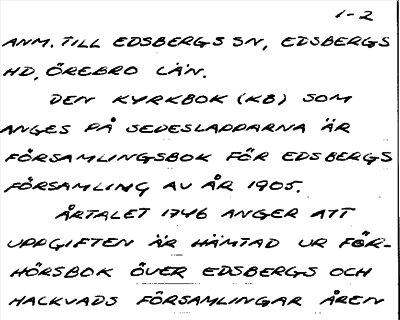 1-2
ANM. TILL EDSBERGS SN, EDSBERGS
HD, ÖREBRO LÄN.
DEN KYRKBOK (KB) SOM
ANGES PÅ SEDESLAPPARNA ÄR
FÖRSAMLINGSBOK FÖR EDSBERGS
FÖRSAMLING AV ÅR 1905.
ÅRTALET 1746 ANGER ATT
UPPGIFTEN ÄR HÄMTAD UR FÖR-
HÖRSBOK ÖVER EDSBERGS OCH
HACKVADS FÖRSAMLINGAR ÅREN